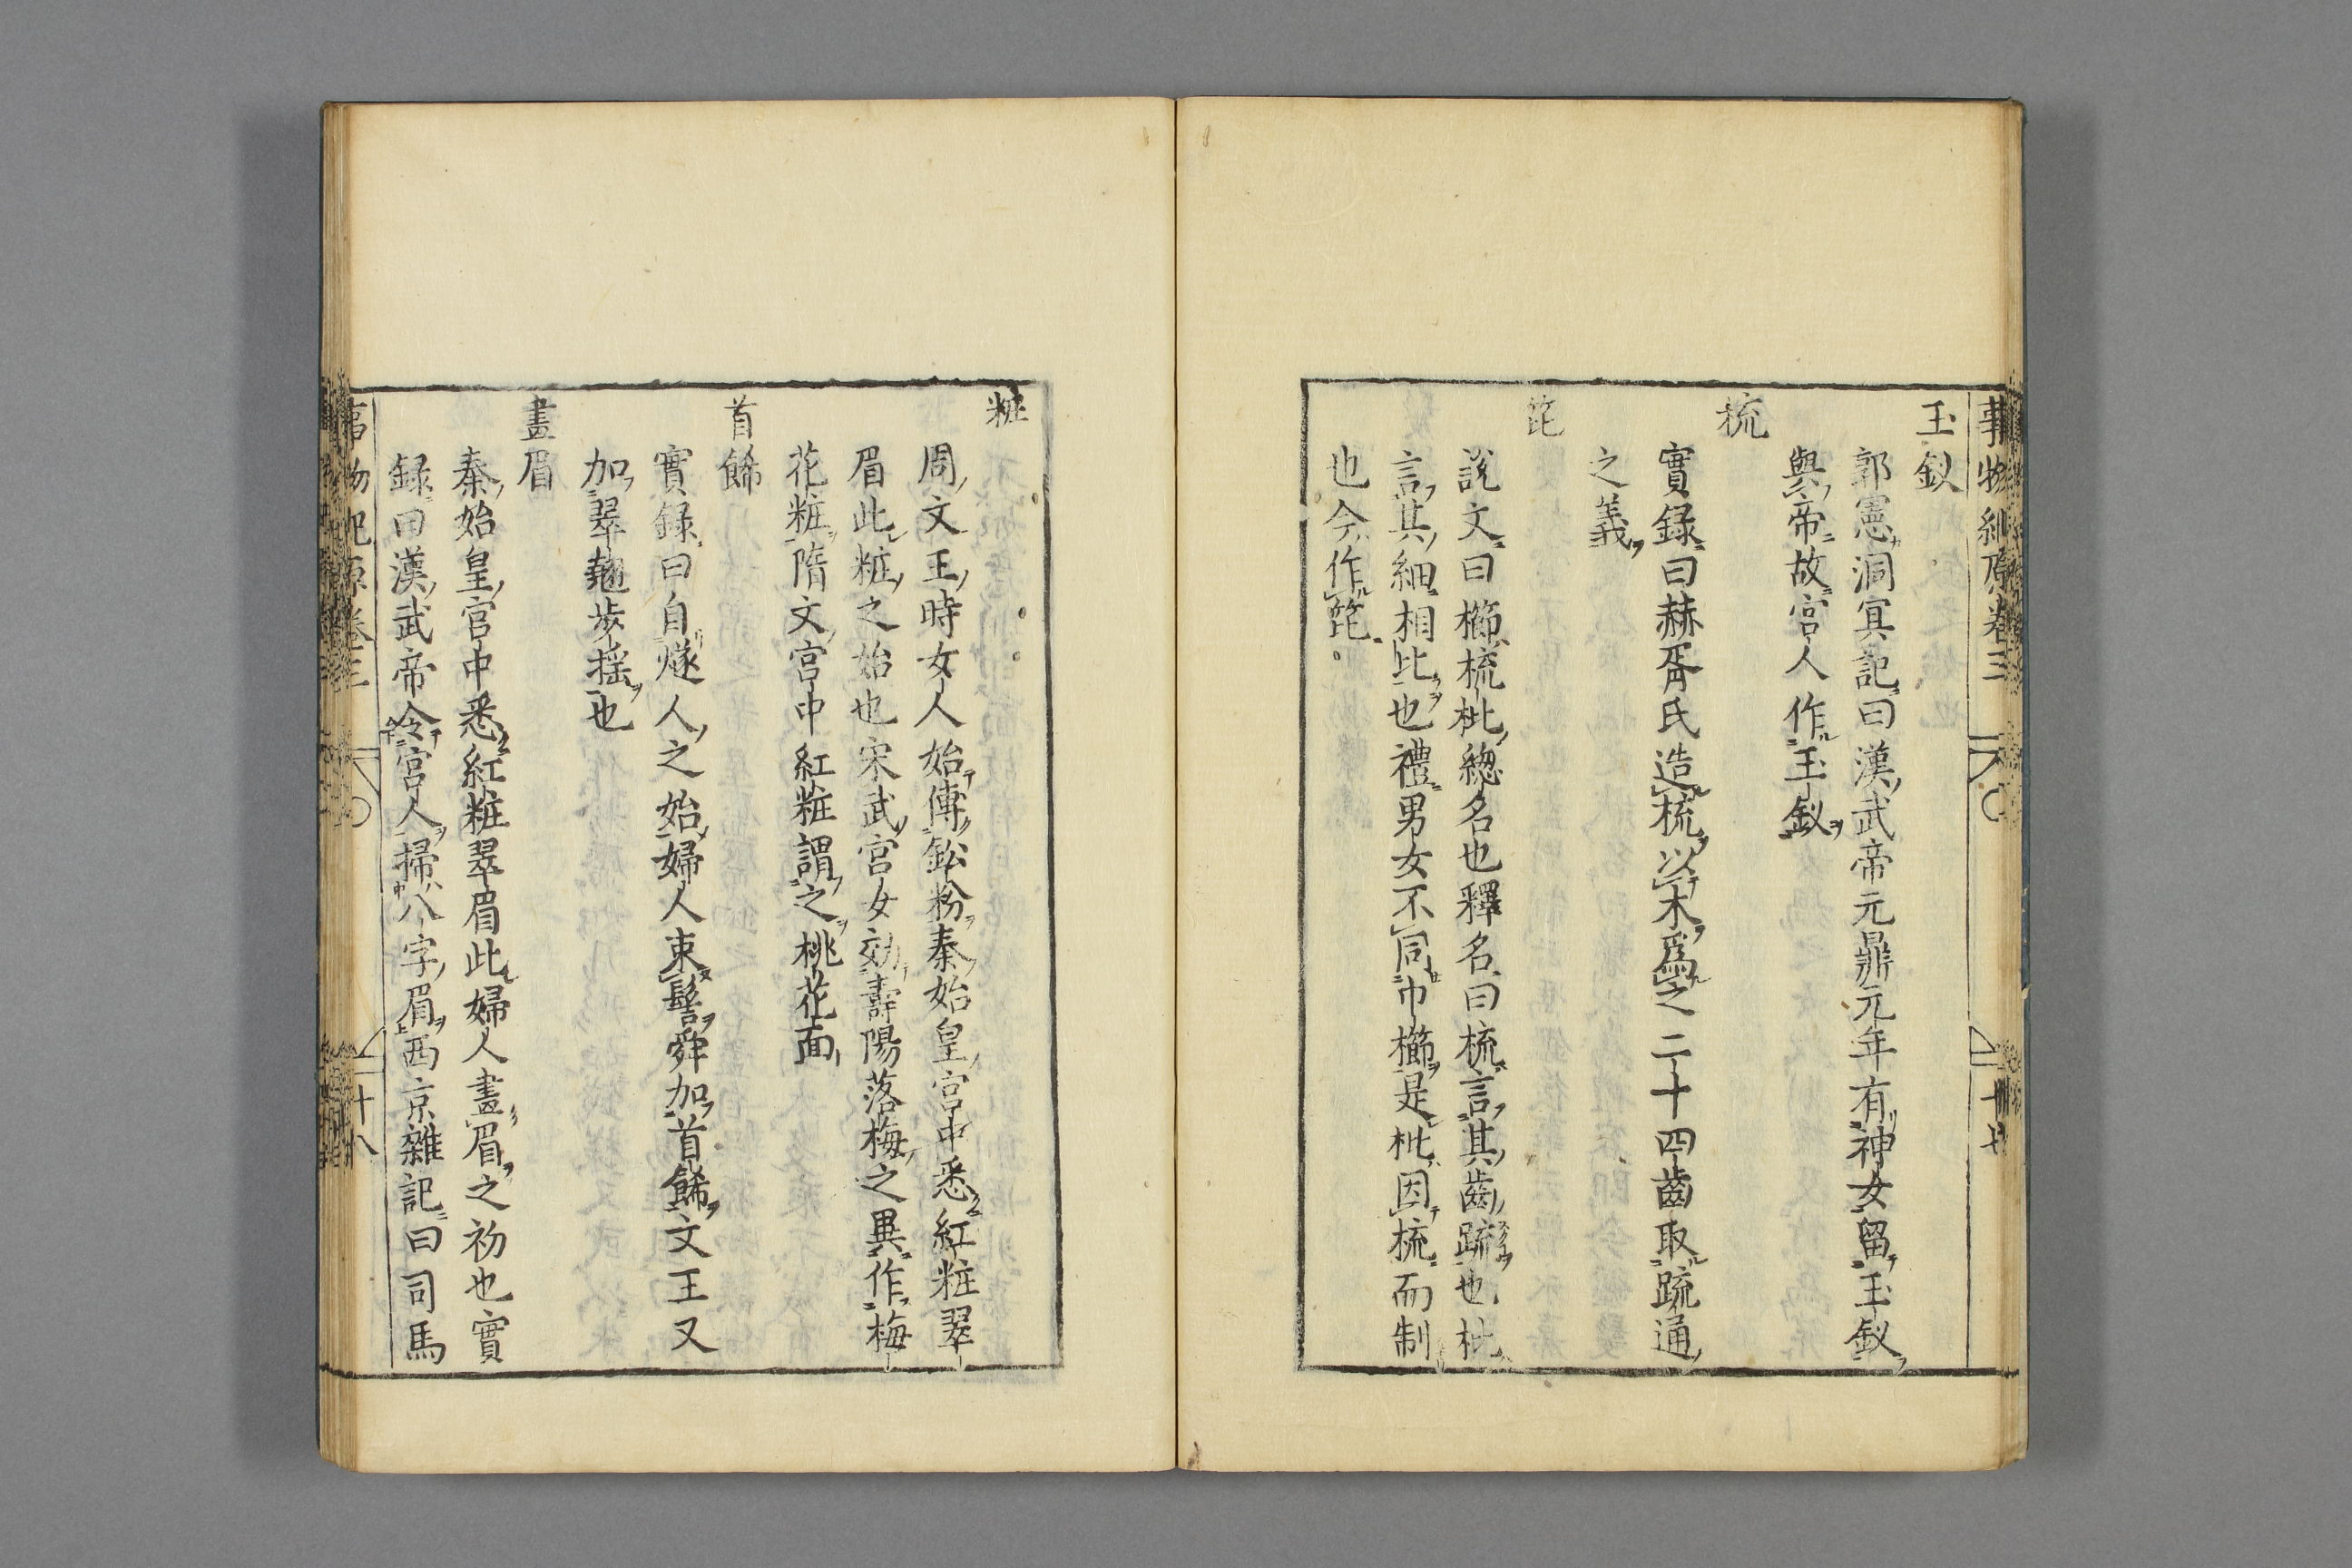 事物紀原卷三
十七
玉釵
郭憲洞冥記曰漢武帝元鼎元年有神女留玉釵
與帝故宮人作玉釵
梳
實録曰赫胥氏造梳以木爲之二十四齒取䟽通
之義
箆
說文曰櫛梳枇總名也釋名曰梳言其齒䟽也枇
言其細相比也禮男女不同巾櫛是枇因梳而制
也今作箆
粧
周文王時女人始傅鈆粉秦始皇宮中悉紅粧翠
眉此粧之始也宋武宮女効壽陽落梅之異作梅
花粧隋文宮中紅粧謂之桃花面
首餙
實録曰自燧人之始婦人束髻舜加首餙文王又
加翠翹步揺也
畫眉
秦始皇宮中悉紅粧翠眉此婦人畫眉之初也實
録曰漢武帝令宮人掃八字眉西京雜記曰司馬
事物紀原卷三
十八